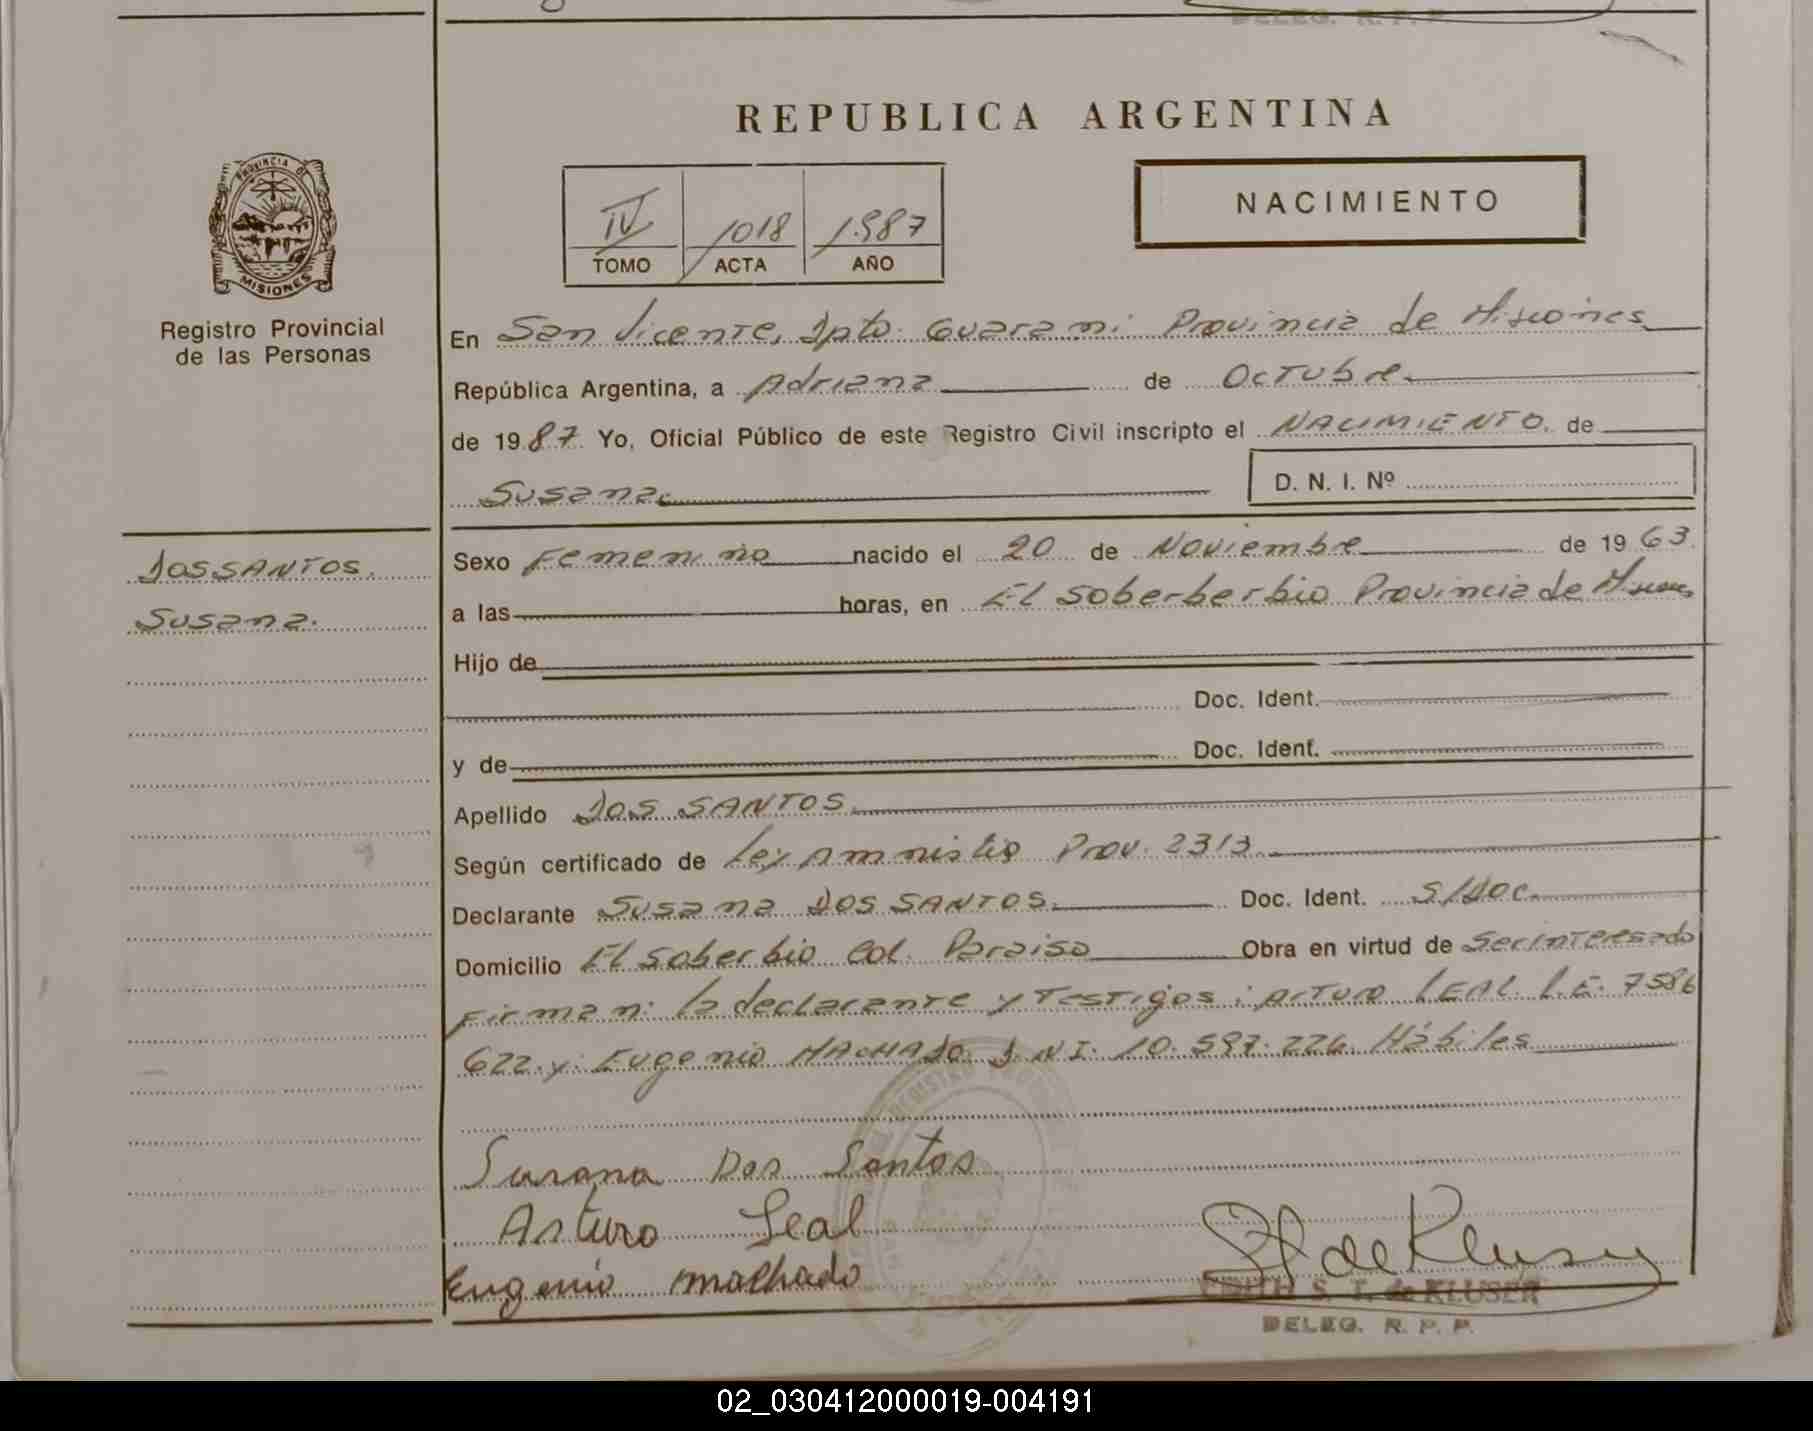 DELEG. R. P. P.
REPUBLICA ARGENTINA
PROVINCIA DE
MISIONES
Registro Provincial
de las Personas
IV 1018 1.987
TOMO ACTA AÑO
NACIMIENTO
En San Vicente, Dpto. Guarani Provincia de Misiones
República Argentina, a Adriana de Octubre
de 1987. Yo, Oficial Público de este Registro Civil inscripto el NACIMIENTO. de
Susana
D. N. I. Nº
DOS SANTOS.
Susana.
Sexo Femenino nacido el 20 de Noviembre de 1963
a las horas, en El Soberberbio Provincia de Misiones
Hijo de
Doc. Ident.
y de Doc. Ident.
Apellido DOS SANTOS.
Según certificado de Ley Amnistia Prov. 2313.
Declarante Susana DOS SANTOS. Doc. Ident. S/DOC.
Domicilio El Soberbio Col. Paraiso Obra en virtud de Ser interesado
Firman: la declarante y Testigos: Arturo LEAL L.E. 7586
622. y: Eugenio MACHADO. D.NI. 10.597.226. Hábiles
Susana Dos Santos
Arturo Leal
Eugenio machado
de Kluser
EDITH S. T. de KLUSER
DELEG. R. P. P.
02_030412000019-004191